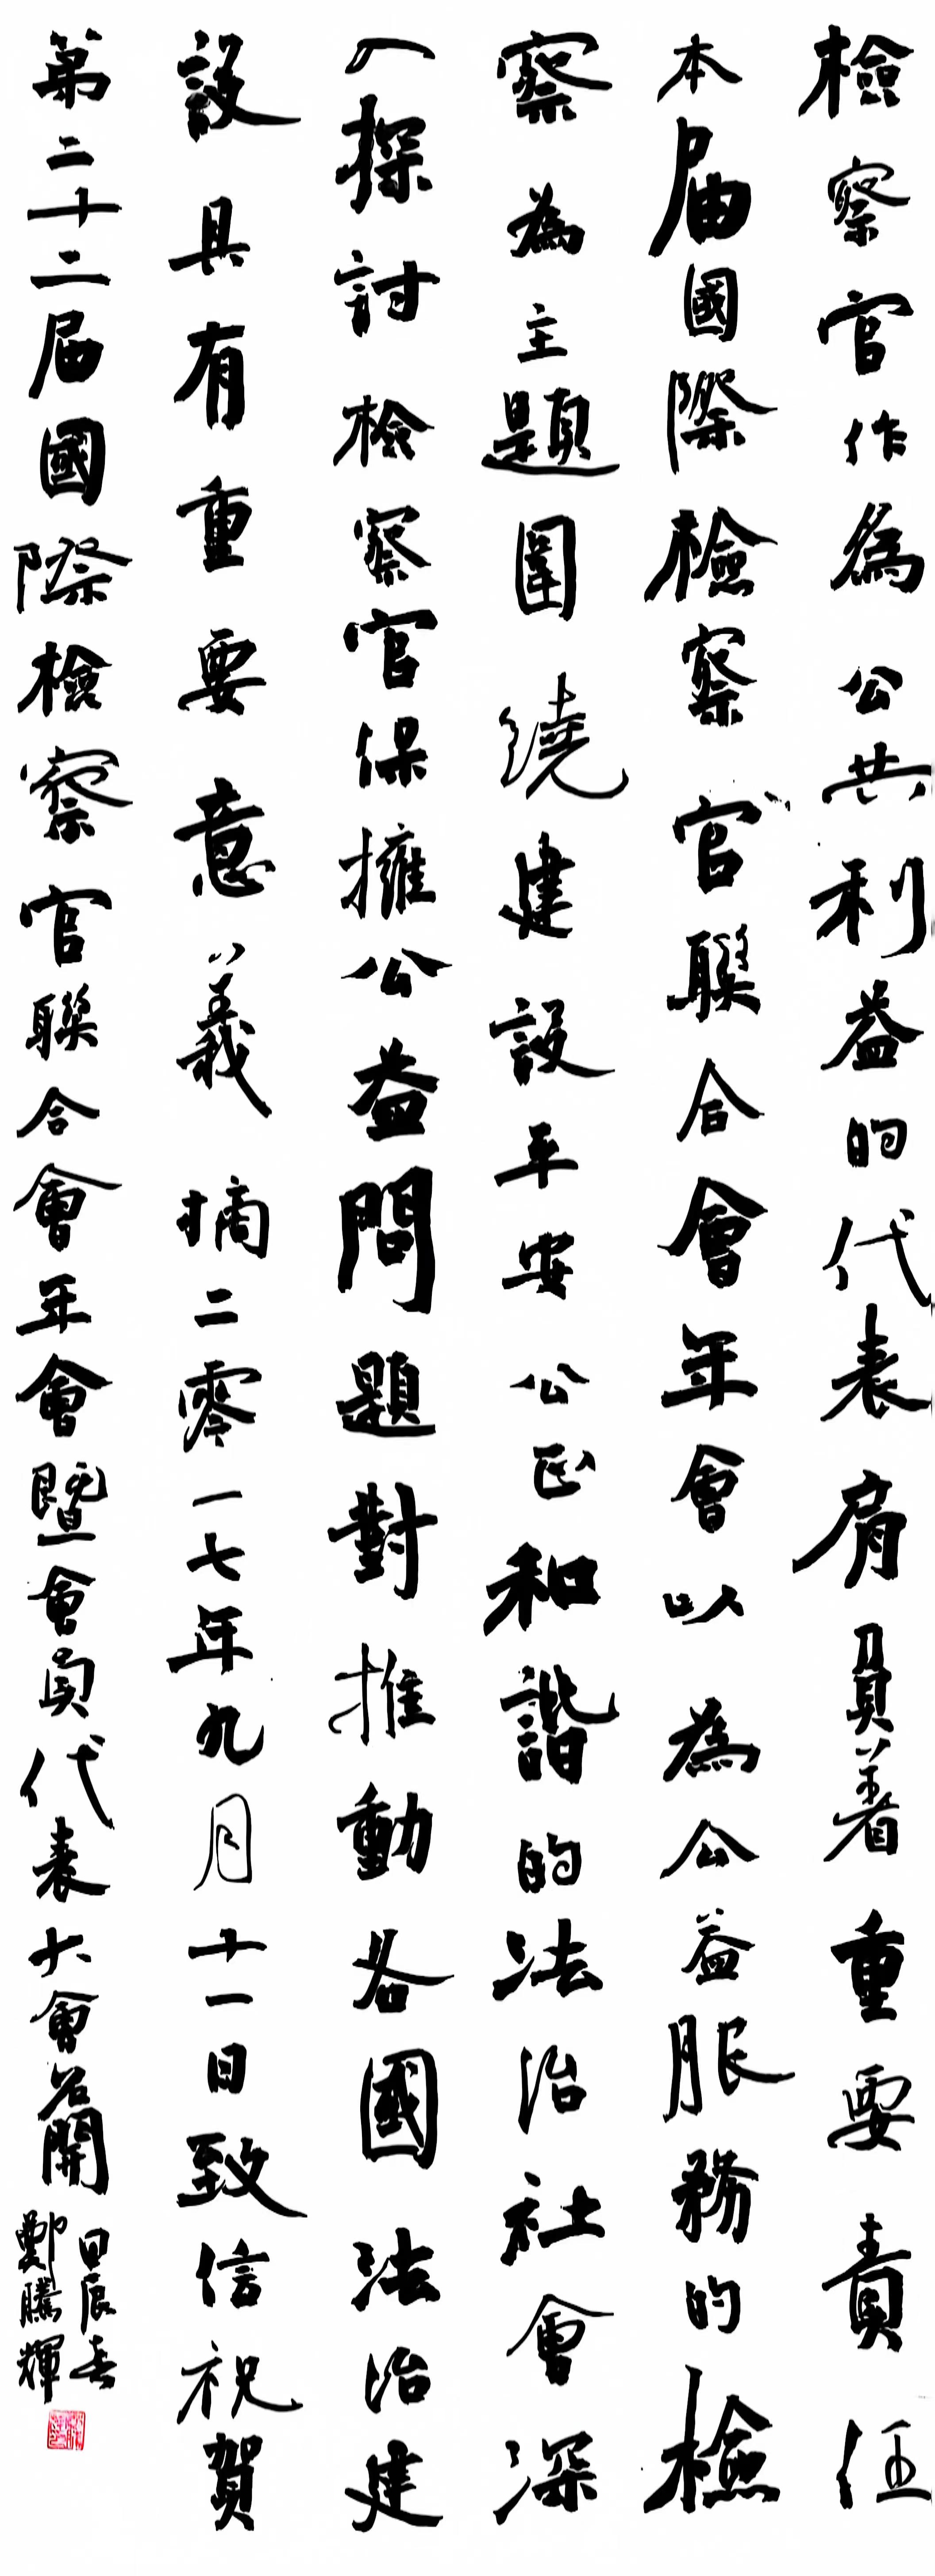 檢察官作為公共利益的代表肩負着重要責任
本届國際檢察官聯合會年會以為公益服務的檢
察為主題圍繞建設平安公正和諧的法治社會深
入探討檢察官保擁公益問題對推動各國法治建
設具有重要意義摘二零一七年九月十一日致信祝賀
第二十二届國際檢察官聯合會年會暨會員代表大會召開
日辰春
鄭騰輝